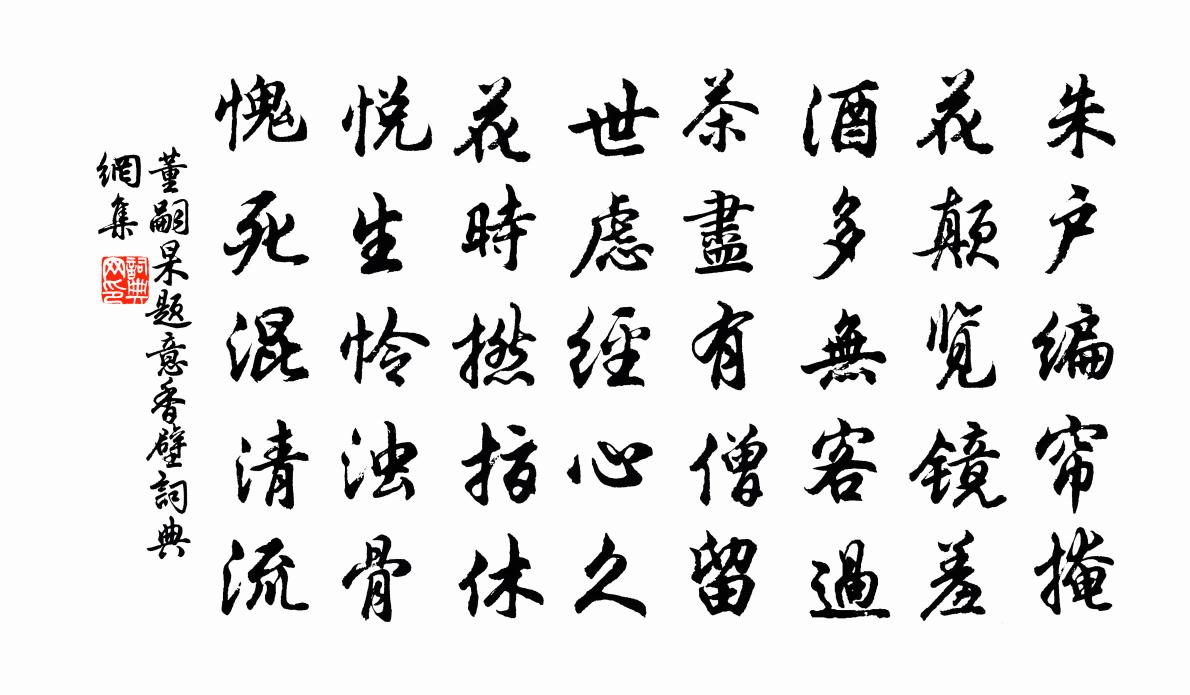 朱户编帘掩
花颠览镜羞
酒多無客過
茶盡有僧留
世慮經心久
花時撚指休
悦生怜浊骨
愧死混清流
董嗣杲题意香壁詞典
網集
詞典
网印